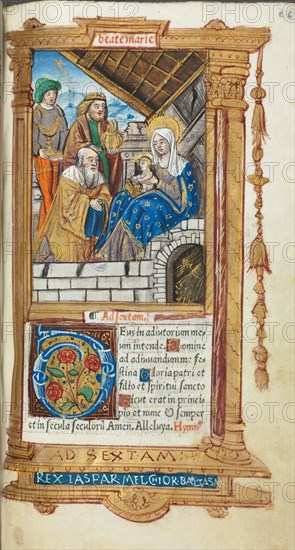 beate marie
Ad sextam.
Deus in adiutorium me
um intende. Domine
ad adiuvandum me fe
stina Gloria patri et
filio et spiritui sancto
Sicut erat in princi
pio et nunc et semper
et in secula seculorū Amen. Alleluya. Hymnꝰ
AD SEXTAM
REX IASPAR MELCHIOR BALTASAR